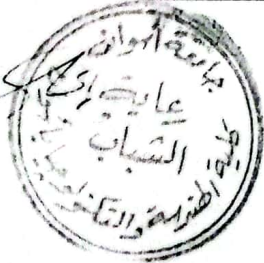 جامعة أسوان
رعاية
الشباب
كلية الهندسة والتكنولوجيا